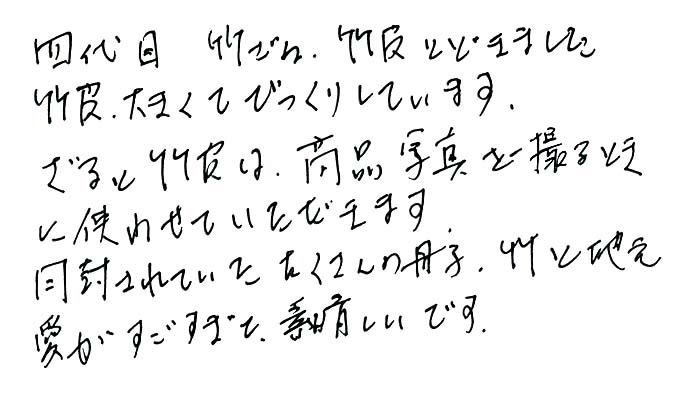 四代目 竹ざる、竹皮とどきました
竹皮、大きくてびっくりしています。
ざると竹皮は、商品写真を撮るとき
に使わせていただきます。
同封されていたたくさんの冊子、竹と地元
愛がすごすぎて、素晴しいです。